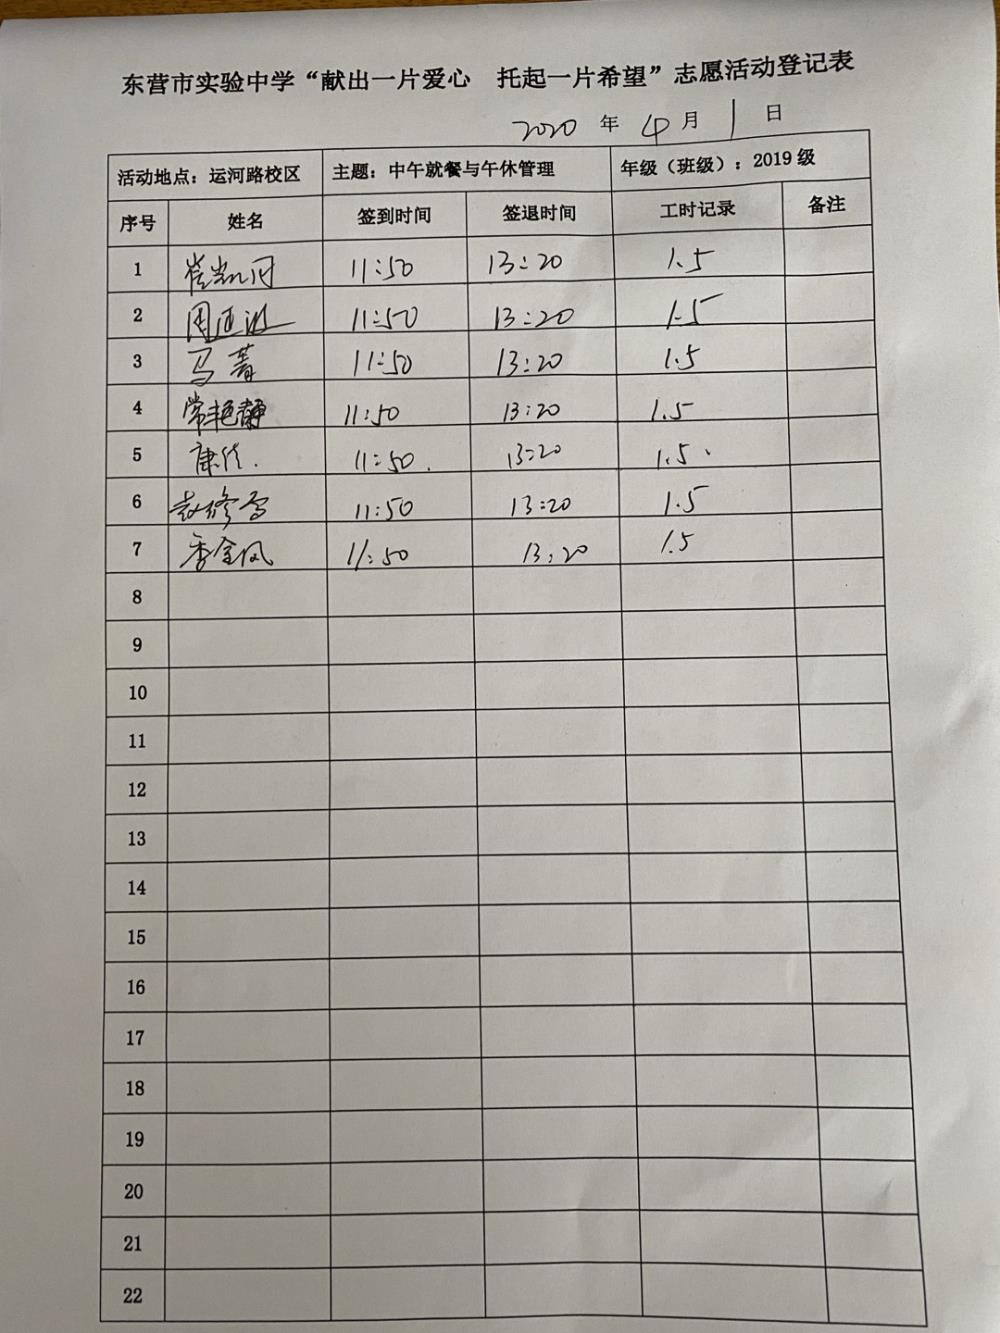 东营市实验中学“献出一片爱心 托起一片希望”志愿活动登记表
2020 年 4 月 1 日
活动地点：运河路校区 主题：中午就餐与午休管理 年级（班级）：2019 级
序号 姓名 签到时间 签退时间 工时记录 备注
1 11:50 13:20 1.5
2 11:50 13:20 1.5
3 马菁 11:50 13:20 1.5
4 常艳静 11:50 13:20 1.5
5 康佳. 11:50. 13:20 1.5.
6 赵修雪 11:50 13:20 1.5
7 季金凤 11:50 13:20 1.5
8
9
10
11
12
13
14
15
16
17
18
19
20
21
22